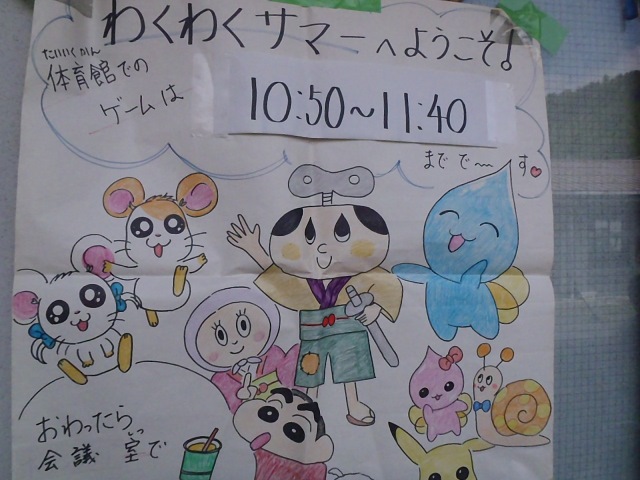 わくわくサマーへようこそ!
たいいくかん
体育館での
ゲームは
10:50〜11:40
までで〜す♥
おわったら
会議室で